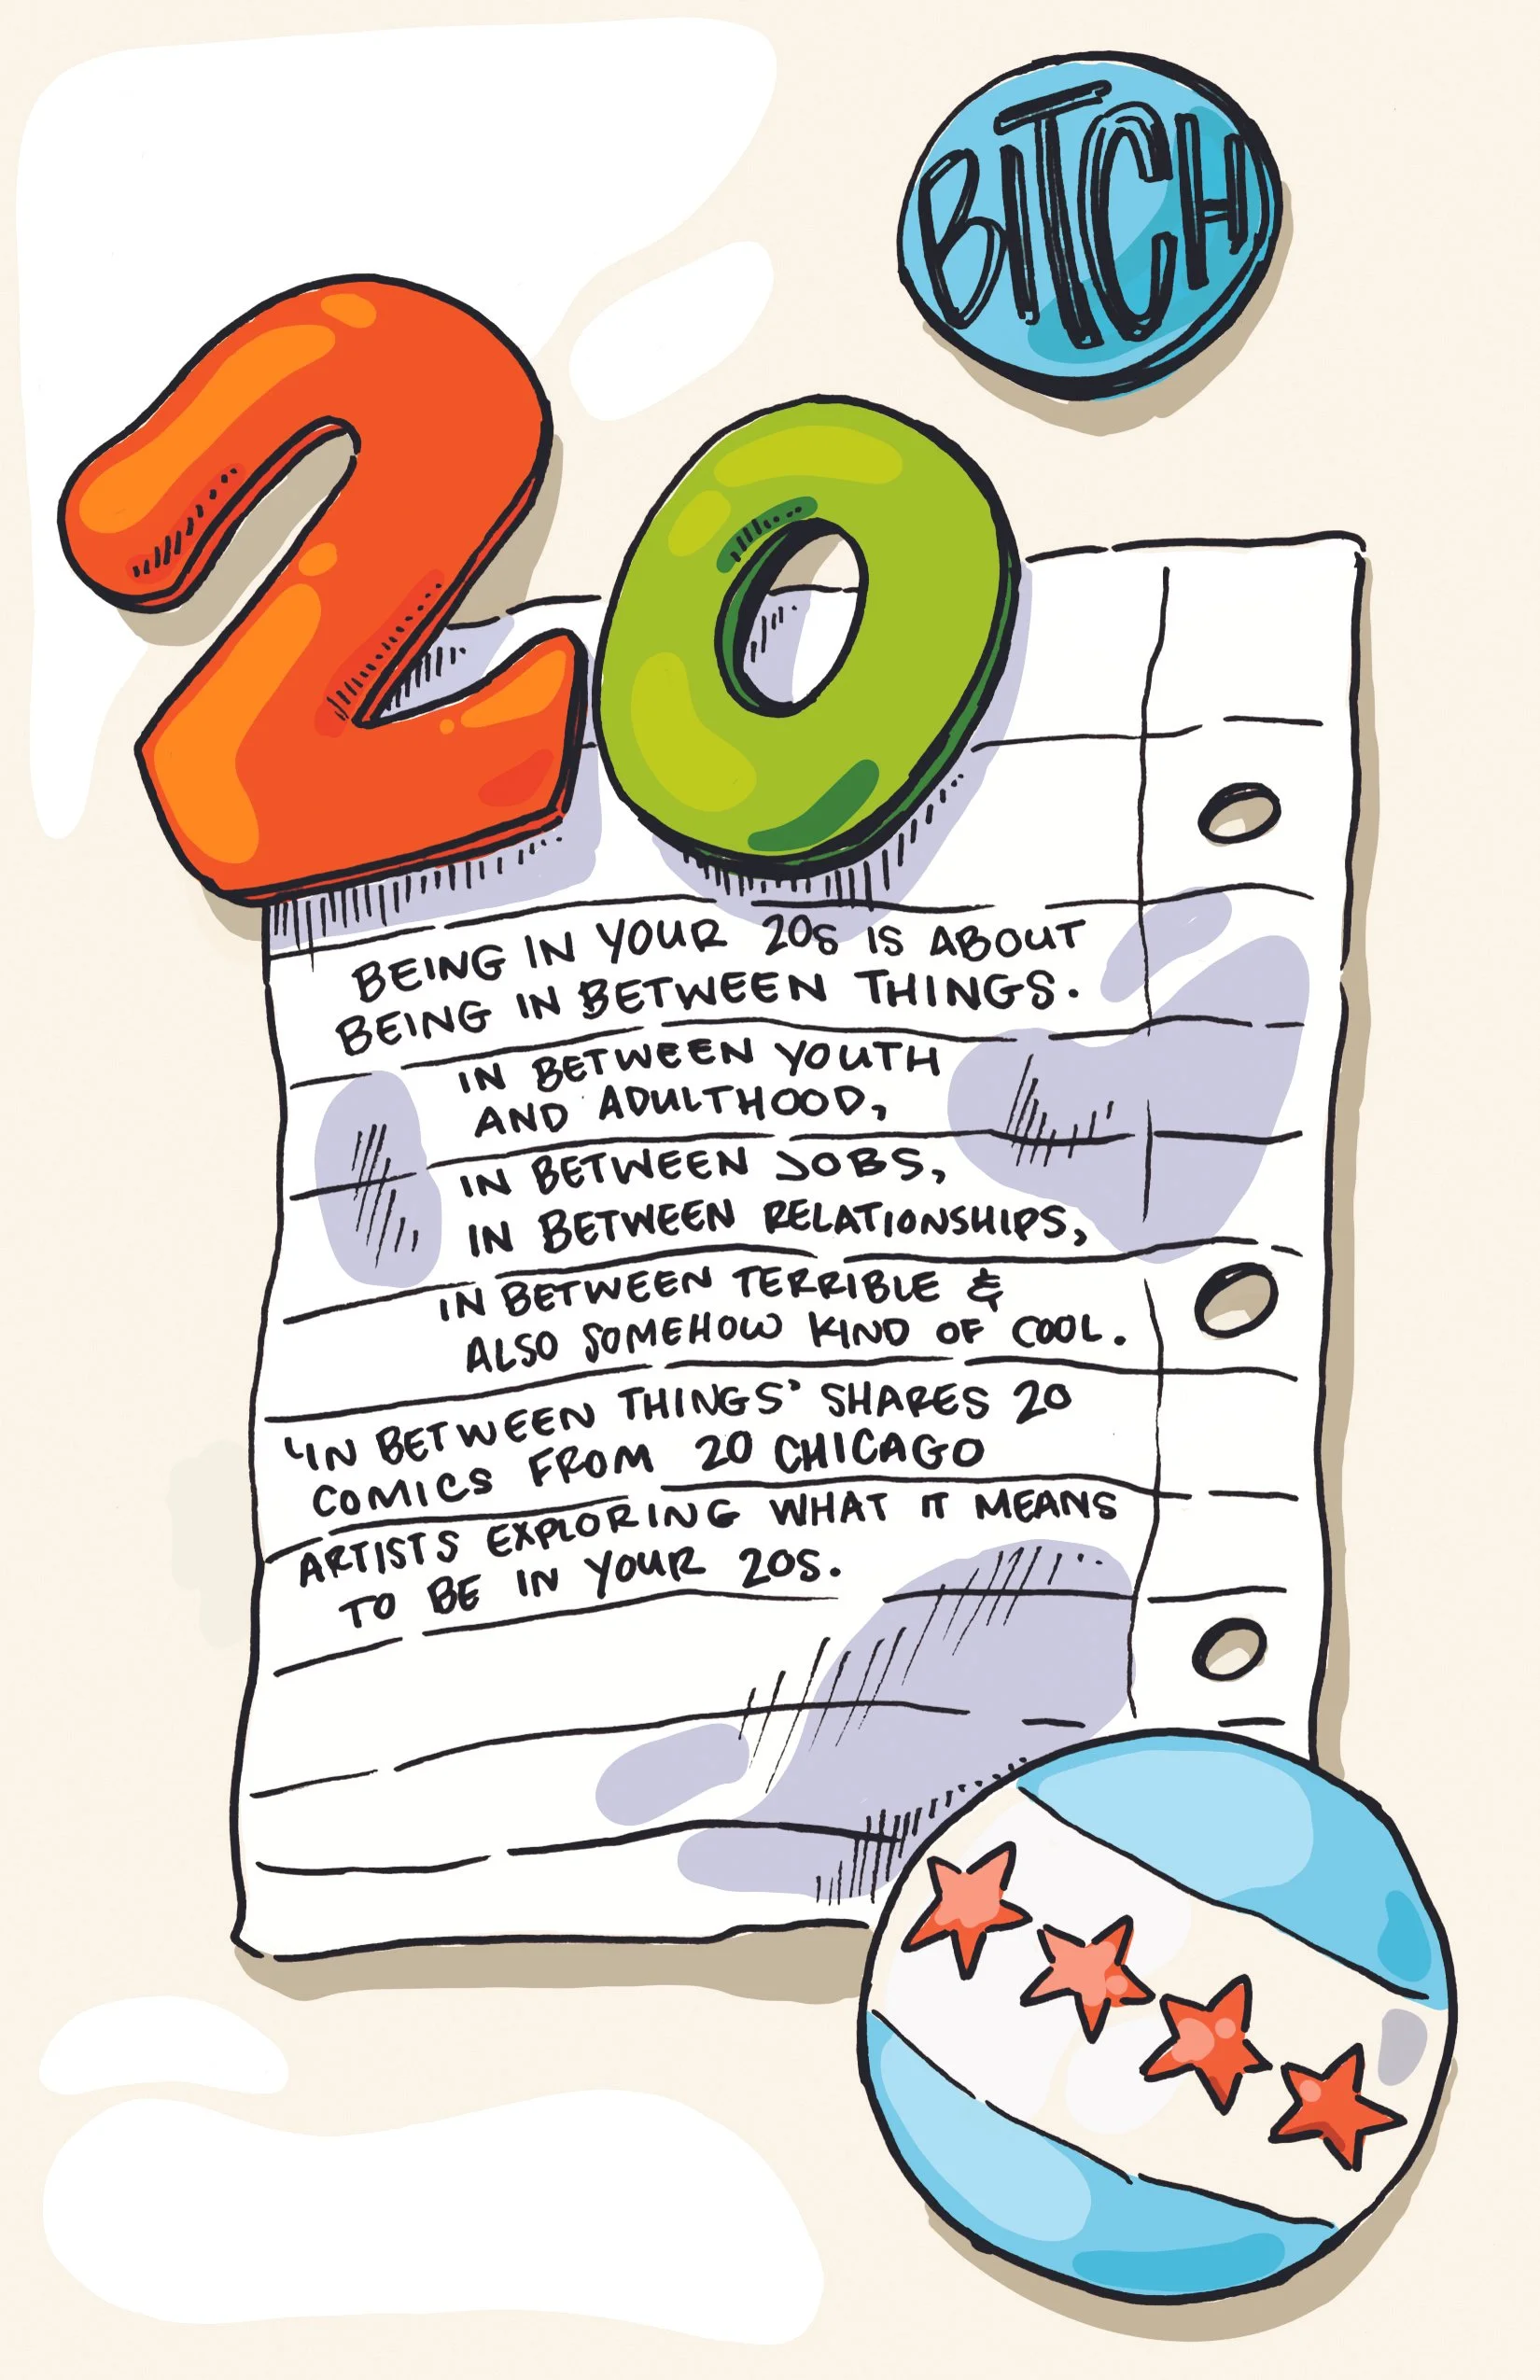 BITCH
20
BEING IN YOUR 20s IS ABOUT
BEING IN BETWEEN THINGS.
IN BETWEEN YOUTH
AND ADULTHOOD,
IN BETWEEN JOBS,
IN BETWEEN RELATIONSHIPS,
IN BETWEEN TERRIBLE &
ALSO SOMEHOW KIND OF COOL.
'IN BETWEEN THINGS' SHARES 20
COMICS FROM 20 CHICAGO
ARTISTS EXPLORING WHAT IT MEANS
TO BE IN YOUR 20S.